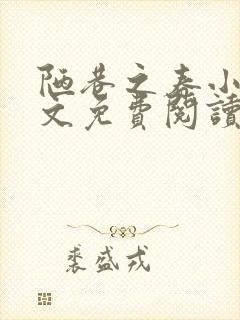 陋巷之春小
文免費閱讀
裘盛戎